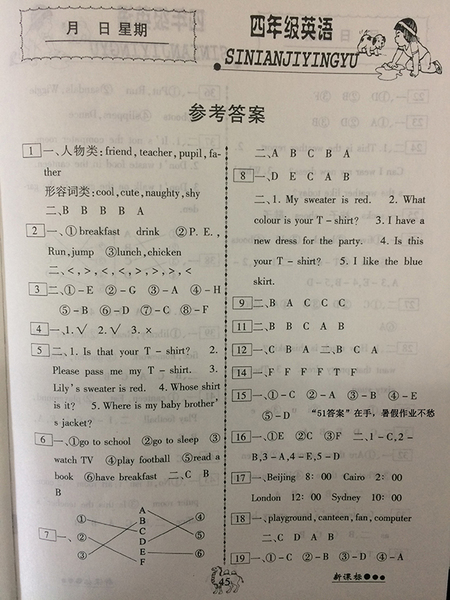 月 日 星期
四年级英语
SINIANJIYINGYU
参考答案
1 一、人物类:friend,teacher,pupil,fa-
ther
形容词类:cool,cute,naughty,shy
二、B B B B A
2 一、①breakfast drink ②P. E.,
Run,jump ③lunch,chicken
二、<,>,<,<,>,>,>,<
3 二、①-E ②-G ③-A ④-H
⑤-B ⑥-D ⑦-C ⑧-F
4 一、1.√ 2.√ 3.×
5 二、1. Is that your T-shirt? 2.
Please pass me my T-shirt. 3.
Lily's sweater is red. 4. Whose shirt
is it? 5. Where is my baby brother'
s jacket?
6 一、①go to school ②go to sleep ③
watch TV ④play football ⑤read a
book ⑥have breakfast 二、C B
B
7 一、
① A ④
② B
C ⑤
③ D
E ⑥
F
二、A B C B A
8 一、D E C A B
二、1. My sweater is red. 2. What
colour is your T-shirt? 3. I have a
new dress for the party. 4. Is this
your T-shirt? 5. I like the blue
skirt.
9 二、B A C C C
11 二、B B C A B
12 一、C B A 二、B C A
14 一、F F F F T F
15 一、①-C ②-A ③-B ④-E
⑤-D “51答案”在手,暑假作业不愁
16 一、①E ②C ③F 二、1-C,2-
B,3-A,4-E,5-D
17 一、Beijing 8:00 Cairo 2:00
London 12:00 Sydney 10:00
18 一、playground,canteen,fan,computer
二、C D A B
19 一、①-C ②-B ③-D ④-A
45
新课标